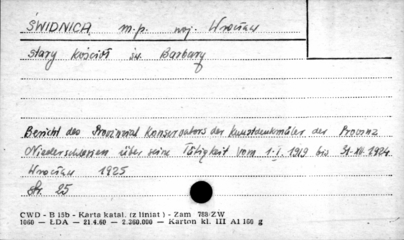 ŚWIDNICA m.p. woj. Wrocław
stary kościół św. Barbary
Bericht des Provinzial Konservators der Kunstdenkmäler der Provinz
Niederschlesien über seine Tätigkeit vom 1-I. 1919 bis 31-XII 1924
Wrocław 1925
Str. 25
CWD - B 15b - Karta katal. (z liniat) - Zam 788-ZW
1060 - ŁDA - 21.4.60 - 2.360.000 - Karton kl. III A1 160 g